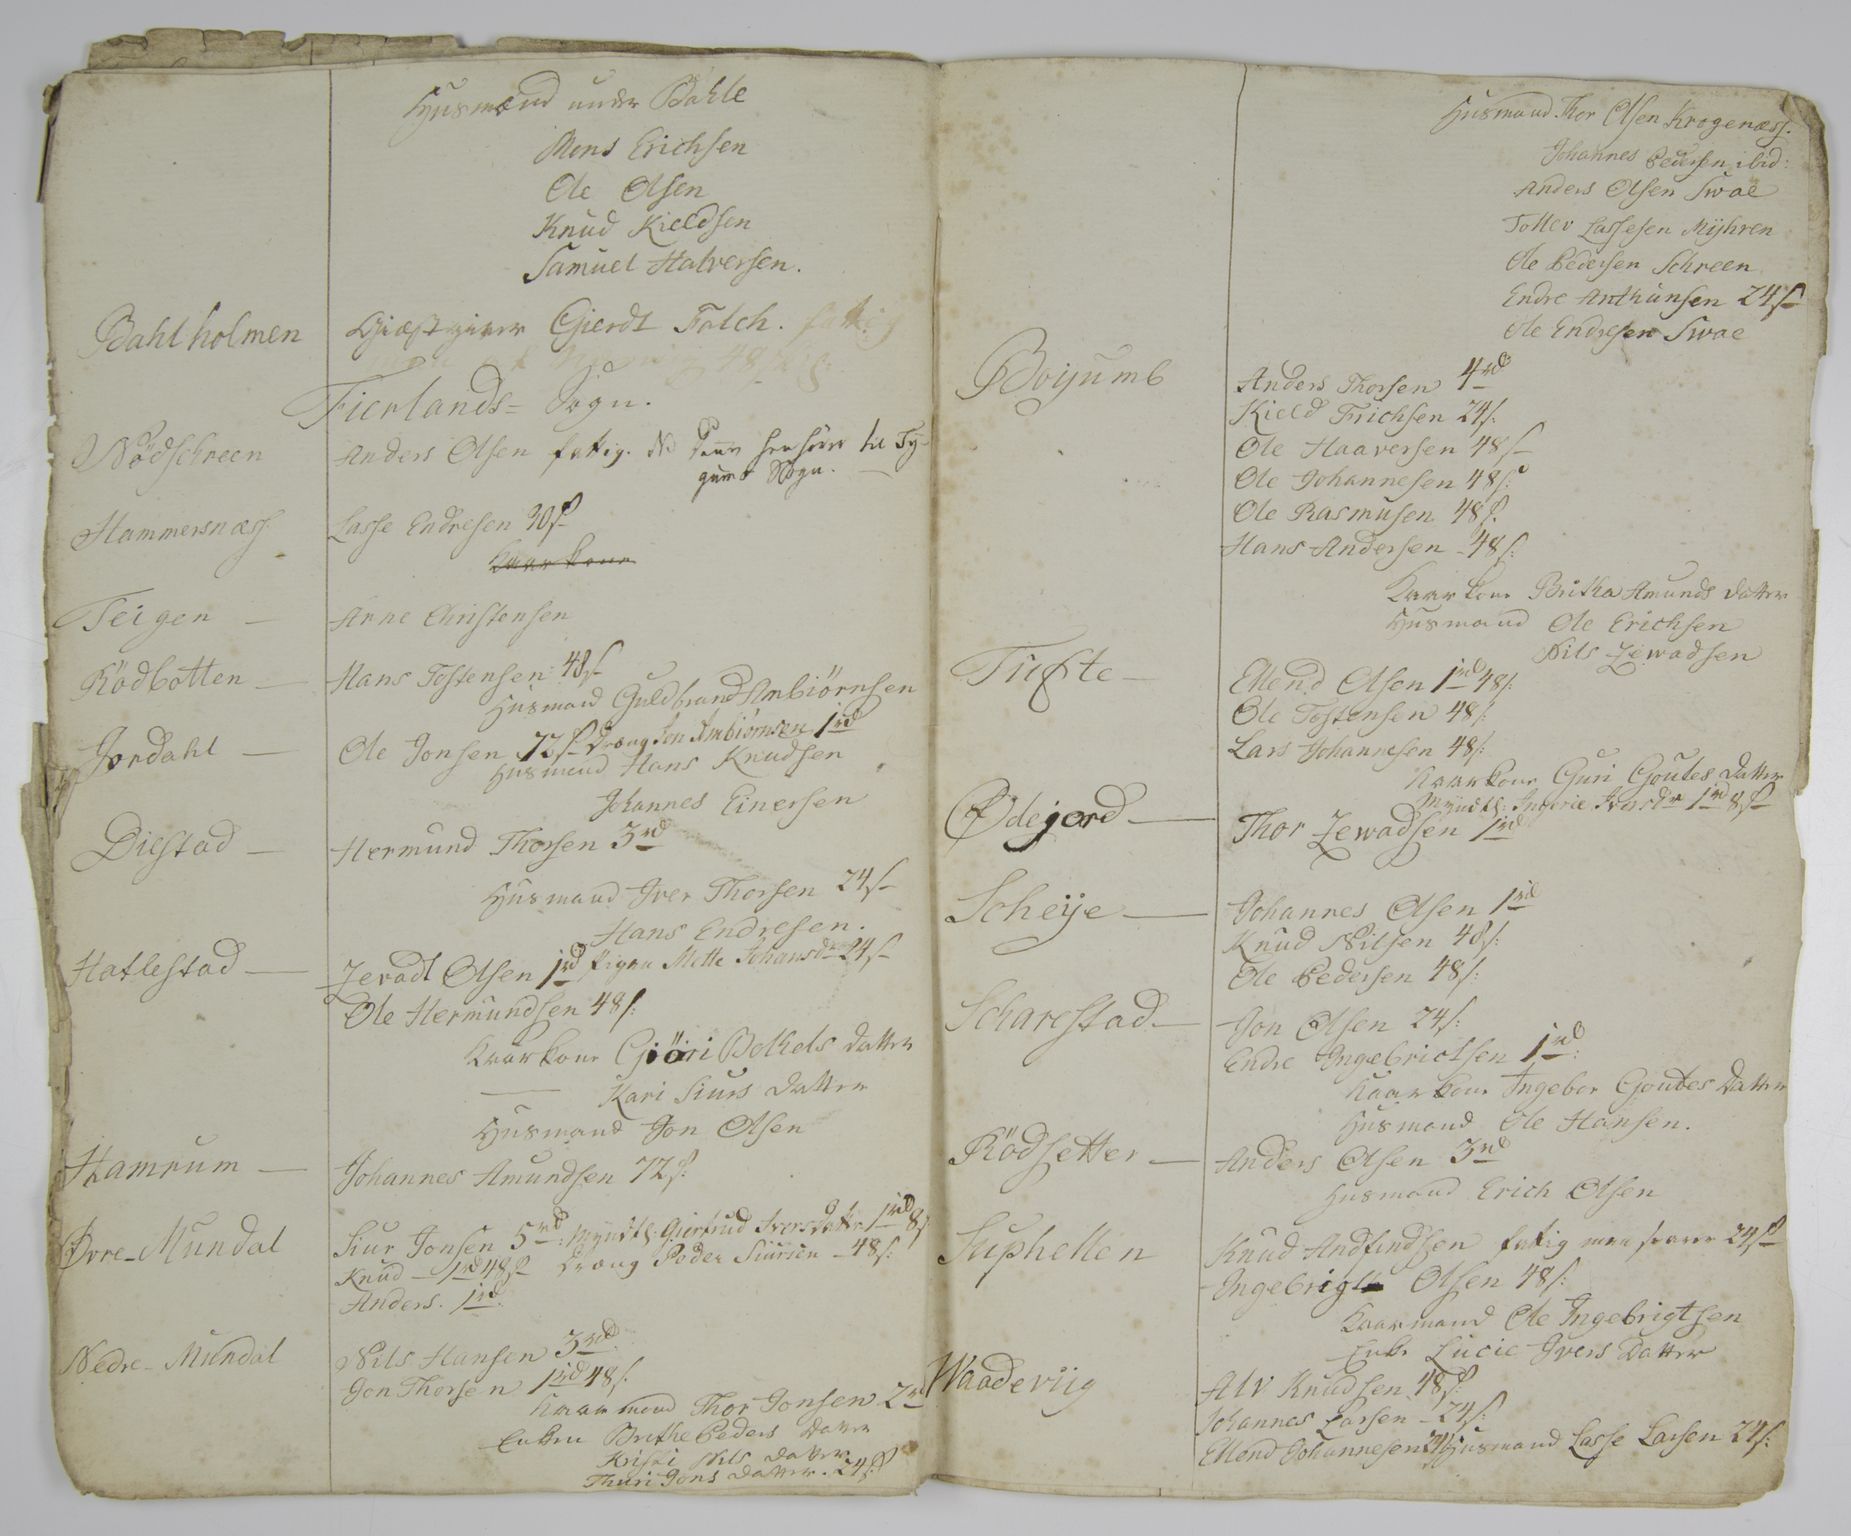 Husmænd under Bahle
Mons Erichsen
Ole Olsen
Knud Kieldsen
Samuel Halversen.
Bahlholmen Giæstgiver Gierdt Falch. fattig
48
Fierlands- Sogn.
Nödschreen Anders Olsen fattig. NB denne henhører til Ty-
gums Sogn.
Hammersnæss Lasse Endresen 30 s
Kaarkone
Teigen — Arne Christensen
Rödbotten — Hans Tostensen 48 s
Husmand Guldbrand Anbiörnsen
Jordahl — Ole Jonsen 72 s Dræng Jon Ambiörnsen 1 rd
Husmend Hans Knudsen
Johannes Einersen
Diestad — Hermund Thorsen 3 rd
Husmand Iver Thorsen 24 s
Hans Endresen.
Hatlestad — Zevadt Olsen 1 rd Pigen Mette Johansdr 24 s
Ole Hermundsen 48 s:
Kaarkone Giöri Bothels datter
— Kari Siurs datter
Husmand Jon Olsen
Hamrum — Johannes Amundsen 72 s:
Øvre-Mundal Siur Jonsen 5 rd: Myndtl: Giertrud Iversdatter 1 rd 8 s
Knud — 1 rd 48 s Dræng Peder Siursen — 48 s:
Anders. 1 rd:
Nedre-Mundal Nils Hansen 3 rd
Jon Thorsen 1 rd 48 s:
Kaarmand Thor Jonsen 2 rd
Enken Brithe Peders datter
Kristi Nils datter
Thuri Jons datter. 24 s
Husmand Thor Olsen Krogenæss.
Johannes Pedersen ibid:
Anders Olsen Swae
Tollev Lassesen Mÿhren
Ole Pedersen Schreen
Endre Anthunsen 24 s
Ole Endresen Swae
Boijumb Anders Thorsen 4 rd
Kield Erichsen 24 s:
Ole Haaversen 48 s
Ole Johannesen 48 s:
Ole Rasmusen 48 s.
Hans Andersen — 48 s:
Kaarkone Britha Amunds datter
Husmand Ole Erichsen
Nils Zewadsen
Tufte — Ellend Olsen 1 rd 48 s:
Ole Tostensen 48 s:
Lars Johannesen 48 s:
Kaarkone Guri Goutes datter
Myndtl: Ingerie Iversdr 1 rd 8 s
Ødejord — Thor Zewadsen 1 rd
Scheije — Johannes Olsen 1 rd
Knud Nilsen 48 s:
Ole Pedersen 48 s:
Scharestad — Jon Olsen 24 s:
Endre Ingebrictsen 1 rd:
Kaarkone Ingebor Goutes datter
Husmand Ole Hansen.
Rödsetter — Anders Olsen 3 rd
Husmand Erich Olsen
Suphellen Knud Andfindsen fattig men svarer 24 s
Ingebrigt Olsen 48 s:
Kaarmand Ole Ingebrigtsen
Enke Lucie Ivers datter
Waadeviig Alv Knudsen 48 s:
Johannes Larsen — 24 s:
Ellend Johannesen 24 s Husmand Lasse Larsen 24 s: